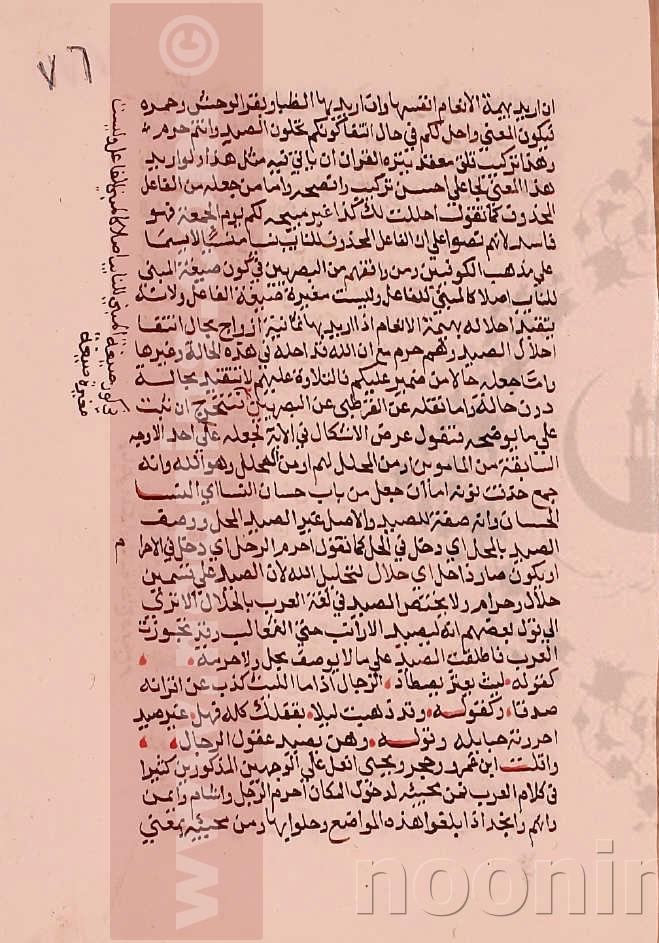 ٧٦
ان اريد بهيمة الأنعام انفسها وان اريد بها الظبا وبقر الوحش وحمره
فيكون المعني واحل لكم في حال انتفا كونكم تحلون الصيد وانتم حرم
وهذا تركيب قلق معقد ينزه القران ان ياتي فيه مثل هذا ولو اريد
هذا المعني لجا علي احسن تركيب وافصحه واما من جعله من الفاعل
المحذوف كما تقول احللت لك كذا غير مبيحه لكم يوم الجمعة فهو
فاسد لانهم نصوا علي ان الفاعل المحذوف للنايب نسيا منسيا لاسيما
علي مذهب الكوفيين ومن وافقهم من البصريين في كون صيغة المبني
للنايب اصلا كالمبني للفاعل وليست مغيرة صيغة الفاعل ولانه
يتقيد احلاله بهيمة الانعام اذا اريد بها ثمانية ازواج بحال انتفا
احلال الصيد وهم حرم مع ان الله قد احله في هذه الحالة وغيرها
واما جعله حالا من ضمير عليكم فالتلاوة عليهم لا تتقيد بحالة
دون حالة واما نقله عن القرطبي عن البصريين ان ثبت
علي ما يوضحه فنقول عرض الاشكال في الاية لجعله علي احد الاوجه
السابقة من المامورين او من المحلل لهم او من المحلل وهو الله وانه
جمع حذفت نونه اما ان جعل من باب حسان النسا اي النسا
الحسان وانه صفة للصيد والاصل غير الصيد المحل ووصف
الصيد بالمحل اي دخل في الحل كما تقول احرم الرجل اي دخل في الاحرا
او يكون صار ذا حل اي حلال لتحليل الله لان الصيد علي قسمين
حلال وحرام ولا يختص الصيد في لغة العرب بالحلال الا تري
الي قول بعضهم انه ليصيد الارانب حتي الثعالب وقد تجوزت
العرب فاطلقت الصيد علي ما لا يوصف بحل ولا حرمه
كقوله ليث بعثر يصطاد الرجال اذا ما الليث كذب عن اقرانه
صدقا وكقوله وقد ذهبت ليلا بقفلك كله فهل غير صيد
احرزته حبايله وقوله وهن يصيد عقول الرجال
وافلت ابن عمرو وحجر ويجي افعل علي الوجهين المذكورين كثيرا
في كلام العرب فمن مجيئه لدخول المكان احرم الرجل واشام وايمن
واتهم وانجد اذا بلغوا هذه المواضع وحلوا بها ومن مجيئه بمعني
في كون صيغة المبني للنايب اصلا كالمبني للفاعل وليست
مغيرة صيغة
noonin